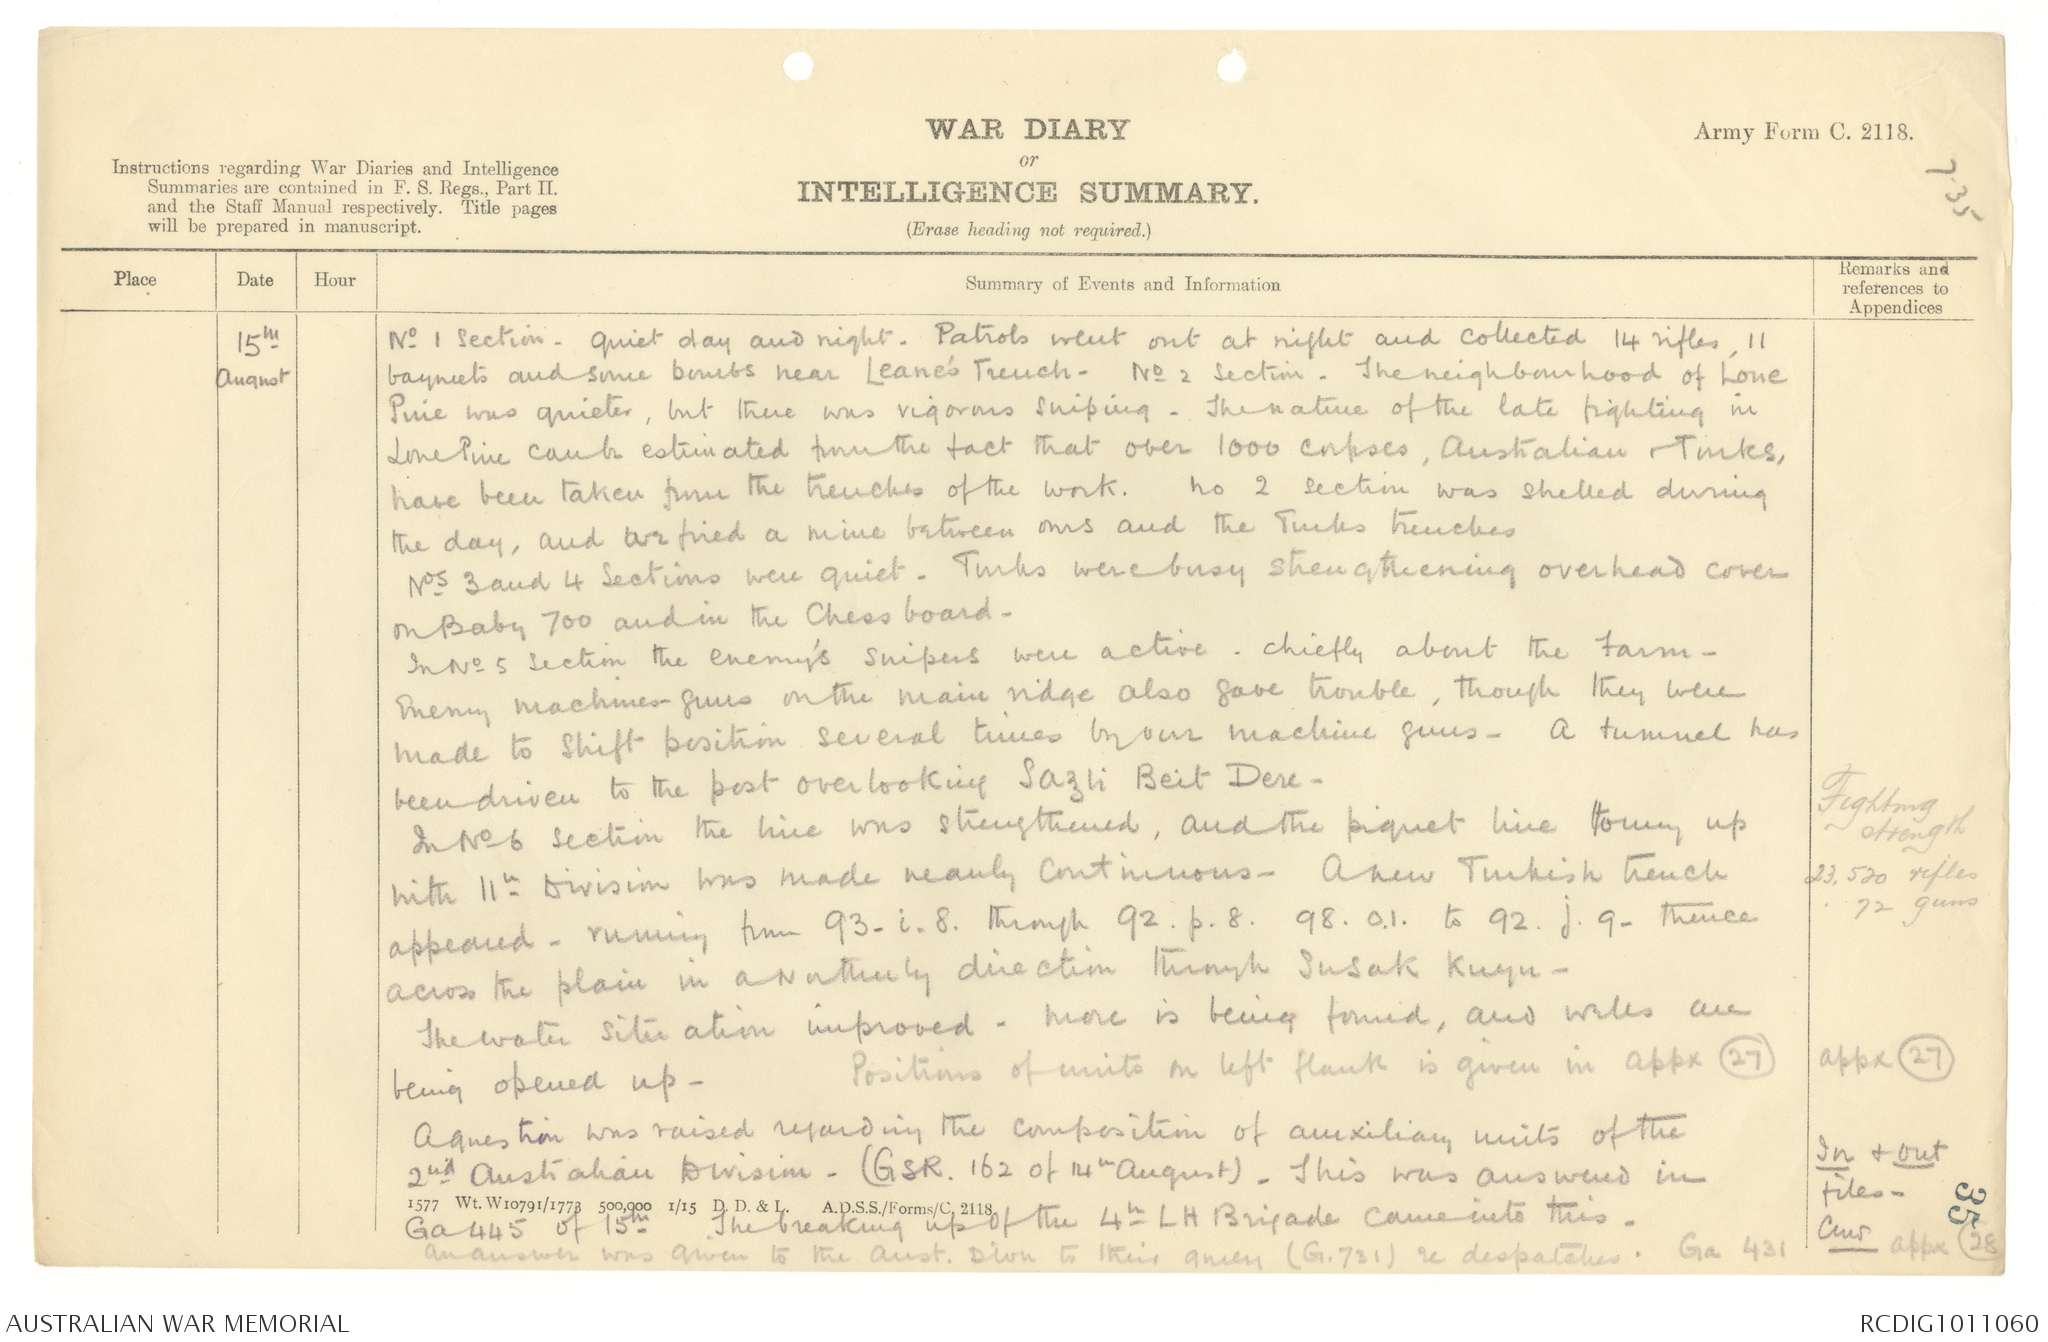 WAR DIARY
or
INTELLIGENCE SUMMARY.
(Erase heading not required.)
Army Form C. 2118.
7.35
Instructions regarding War Diaries and Intelligence
Summaries are contained in F. S. Regs., Part II.
and the Staff Manual respectively. Title pages
will be prepared in manuscript.
Place Date Hour Summary of Events and Information Remarks and references to Appendices
15th August
No 1 Section - quiet day and night. Patrols went out at night and collected 14 rifles, 11
baynets and some bombs near Leane's Trench - No 2 Section - The neighbourhood of Lone
Pine was quieter, but there was vigorous sniping - The nature of the late fighting in
Lone Pine can be estimated from the fact that over 1000 corpses, Australian & Turks,
have been taken from the trenches of the work. No 2 section was shelled during
the day, and we fired a mine between ours and the Turks trenches
Nos 3 and 4 Sections were quiet - Turks were busy strengthening overhead cover
on Baby 700 and in the Chess board -
In No 5 Section the enemy's snipers were active - chiefly about the Farm -
Enemy machines-guns on the main ridge also gave trouble, though they were
made to shift position several times by our machine guns - A tunnel has
been driven to the post overlooking Sazli Beit Dere -
In No 6 section the line was strengthened, and the piquet line joining up
with 11th Division was made nearly continuous - A new Turkish trench
appeared - running from 93-i.8. through 92.p.8. 98.O.1. to 92.j.9 - thence
across the plain in a Northerly direction through Susak Kuyu -
The water situation improved - more is being found, and wells are
being opened up - Positions of units on left flank is given in appx 27
A question was raised regarding the composition of auxiliary units of the
2nd Australian Division - (GSR. 162 of 14th August) - This was answered in
1577 Wt. W10791/1773 500,000 1/15 D. D. & L. A.D.S.S./Forms/C. 2118.
Ga 445 of 15th The breaking up of the 4th LH Brigade came into this -
An answer was given to the Aust. Divn to their query (G.731) re despatches. Ga 431
Fighting
strength
23,520 rifles
72 guns
appx 27
In & out
files -
appx 28
35
AUSTRALIAN WAR MEMORIAL
RCDIG1011060